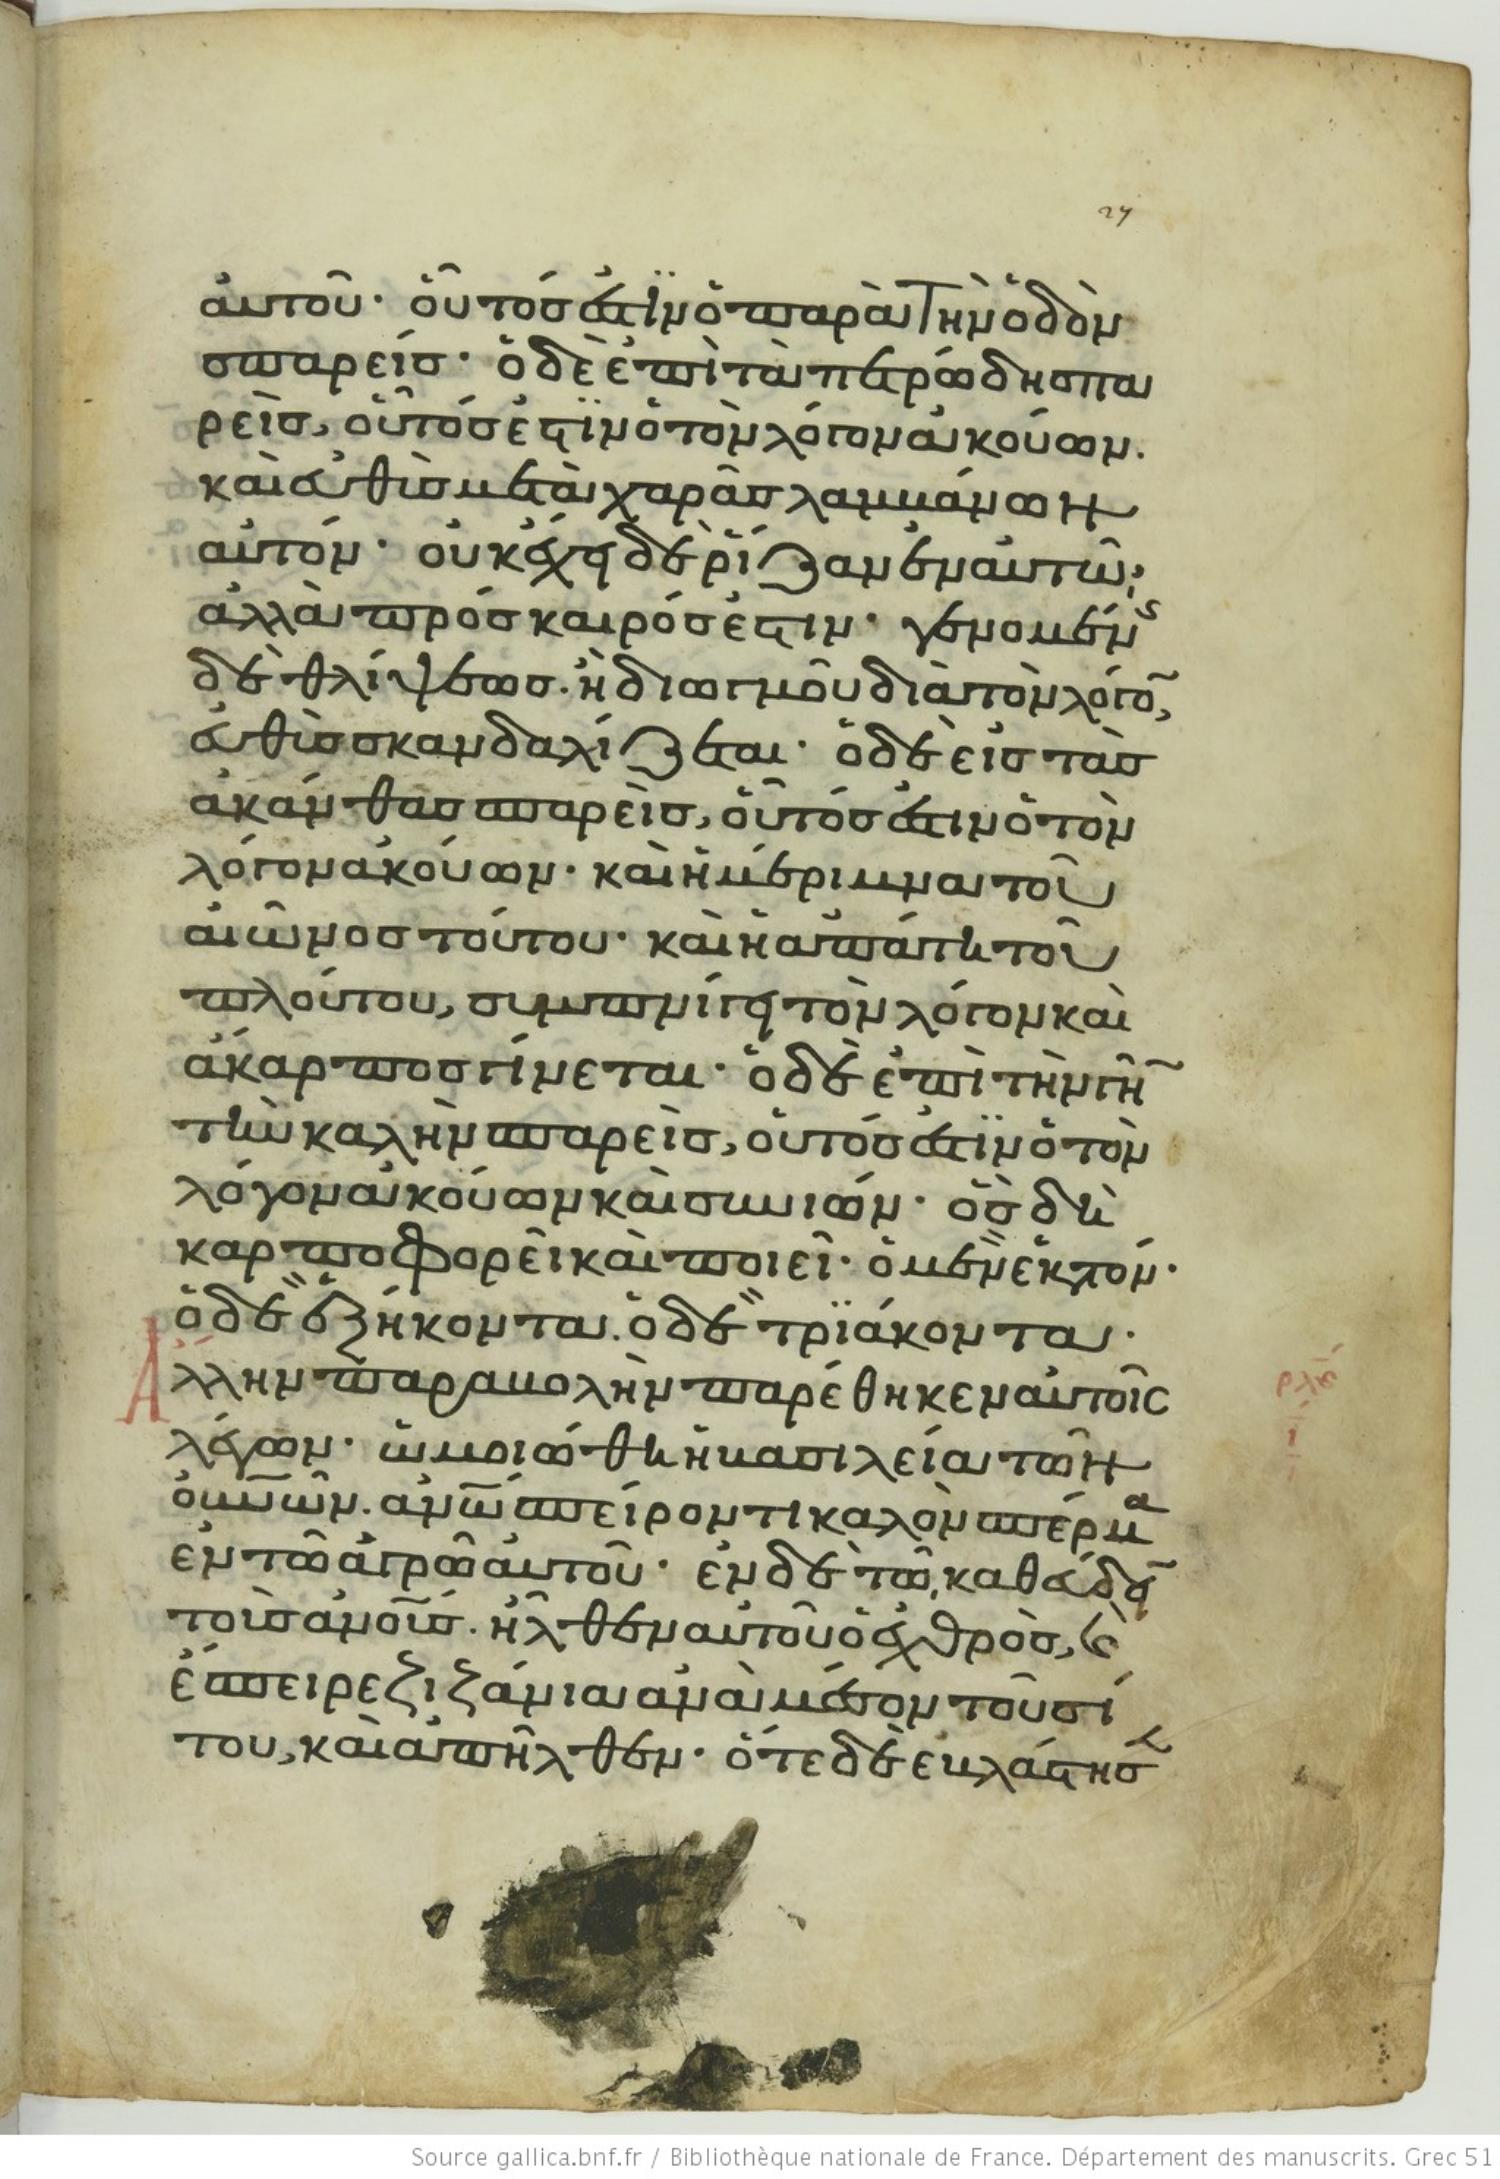 27
αυτοῦ· οὗτός ἐστϊν ὁ παρὰ τὴν ὁδὸν
σπαρείς· ὁ δὲ ἐπὶ τὰ πετρώδη σπα
ρεὶς, οὗτός ἐστϊν ὁ τὸν λόγον ἀκούων.
καὶ εὐθὺς μετὰ χαρᾶς λαμβάνων
αὐτόν· οὐκ ἔχει δὲ ῥίζαν ἐν αυτῶ;
ἀλλὰ πρόσκαιρός ἐστιν· γενομένς
δὲ θλίψεως. ἢ διωγμοῦ διὰ τὸν λόγο̄,
εὐθὺς σκανδαλίζεται· ὁ δὲ εἰς τὰς
ἀκάνθας σπαρεὶς, οὗτός ἐστιν ὁ τὸν
λόγον ἀκούων· καὶ ἡ μέριμνα τοῦ
αἰῶνος τούτου· καὶ ἡ ἀπάτη τοῦ
πλούτου, συμπνίγει τὸν λόγον καὶ
ἄκαρπος γίνεται· ὁ δὲ ἐπὶ τὴν γῆ̄
τὴν καλὴν σπαρεὶς, οὑτός ἐστϊν ὁ τὸν
λόγον ἀκούων καὶ συνιών· ὃς δὴ
καρποφορεῖ καὶ ποιεῖ· ὁ μὲν ἑκατόν·
ὁ δὲ ἑξήκοντα. ὁ δὲ τρϊάκοντα·
Ἄλλην παραβολὴν παρέθηκεν αὐτοῖς
λέγων· ὡμοιώθη ἡ βασιλεία τῶν
οὐν̅ῶν. ἀν̅ω σπείροντι καλὸν σπέρμα
ἐν τῶ ἀγρῶ αυτοῦ· ἐν δὲ τῶ, καθεύδεῑ
τοὺς ἀν̅οῦς. ἦλθεν αὐτοῦ ὁ ἐχθρὸς, ϗ
ἔσπειρε ζιζάνια ἀνὰ μέσον τοῦ σί
του, καὶ ἀπῆλθεν· ὅτε δὲ ἐβλάστησε
Source gallica.bnf.fr / Bibliothèque nationale de France. Département des manuscrits. Grec 51